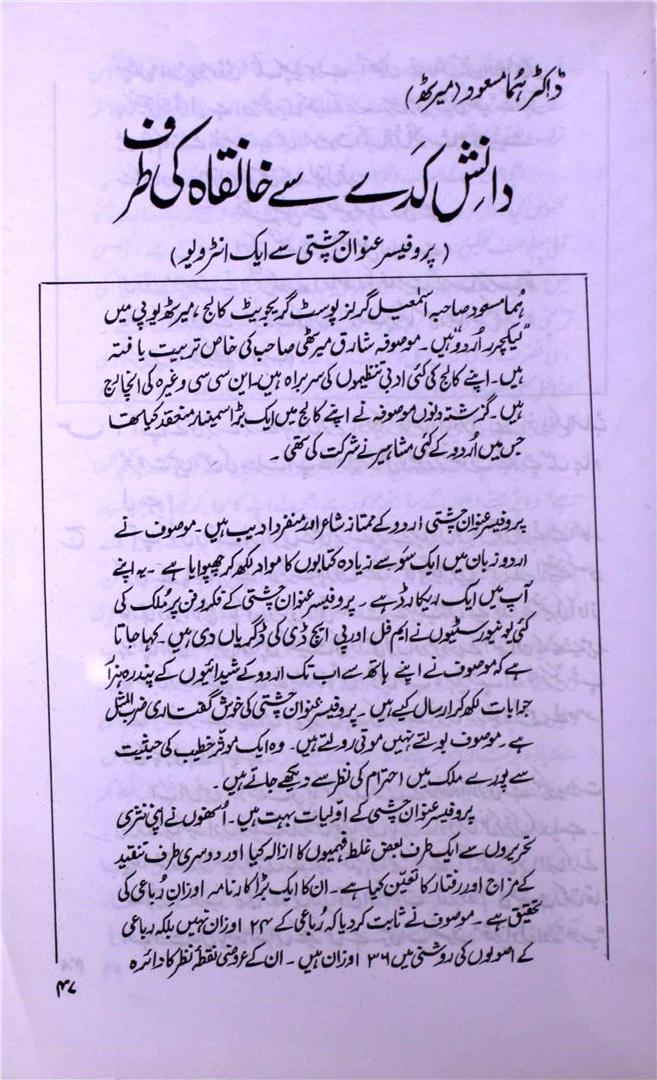 ڈاکٹر ہُما مسعود (میرٹھ)
دانش کدے سے خانقاہ کی طرف
(پروفیسر عنوان چشتی سے ایک انٹرویو)
ہما مسعود صاحبہ اسمٰعیل گرلز پوسٹ گریجویٹ کالج، میرٹھ یوپی میں
"لیکچرر اُردو" ہیں۔ موصوفہ شارق میرٹھی صاحب کی خاص تربیت یافتہ
ہیں۔ اپنے کالج کی کئی ادبی تنظیموں کی سربراہ ہیں، این سی سی وغیرہ کی انچارج
ہیں۔ گزشتہ دنوں موصوفہ نے اپنے کالج میں ایک بڑا سمینار منعقد کیا تھا
جس میں اُردو کے کئی مشاہیر نے شرکت کی تھی۔
پروفیسر عنوان چشتی اردو کے ممتاز شاعر اور منفرد ادیب ہیں۔ موصوف نے
اردو زبان میں ایک سَو سے زیادہ کتابوں کا مواد لکھ کر چھپوایا ہے۔ یہ اپنے
آپ میں ایک ریکارڈ ہے۔ پروفیسر عنوان چشتی کے فکر و فن پر مُلک کی
کئی یونیورسٹیوں نے ایم فل اور پی ایچ ڈی کی ڈگریاں دی ہیں۔ کہا جاتا
ہے کہ موصوف نے اپنے ہاتھ سے اب تک اردو کے شیدائیوں کے پندرہ ہزار
جوابات لکھ کر ارسال کیے ہیں۔ پروفیسر عنوان چشتی کی خوش گفتاری ضرب المثل
ہے۔ موصوف بولتے نہیں موتی رولتے ہیں۔ وہ ایک موثر خطیب کی حیثیت
سے پورے ملک میں احترام کی نظر سے دیکھے جاتے ہیں۔
پروفیسر عنوان چشتی کے اوّلیات بہت ہیں۔ اُنھوں نے اپنی نثری
تحریروں سے ایک طرف بعض غلط فہمیوں کا ازالہ کیا اور دوسری طرف تنقید
کے مزاج اور رفتار کا تعین کیا ہے۔ ان کا ایک بڑا کارنامہ اوزانِ رُباعی کی
تحقیق ہے۔ موصوف نے ثابت کردیا کہ رُباعی کے ۲۴ اوزان نہیں بلکہ رباعی
کے اصولوں کی روشنی میں ۳۶ اوزان ہیں۔ ان کے عروضی نقطۂ نظر کا دائرہ
۴۷